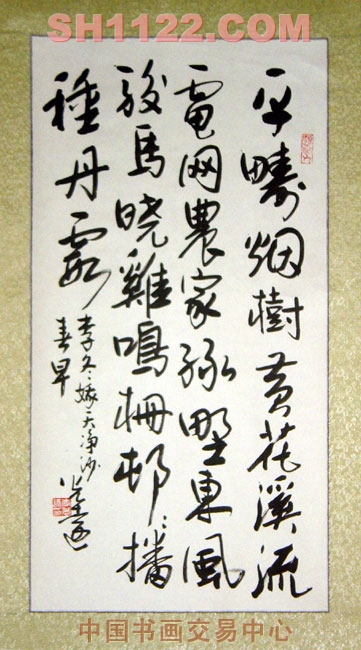 SH1122.COM
平疇烟樹黄花溪流
電网農家緑野東風
駿馬晓雞鳴柵邨々播
種丹霞
天净沙
春早
中国书画交易中心